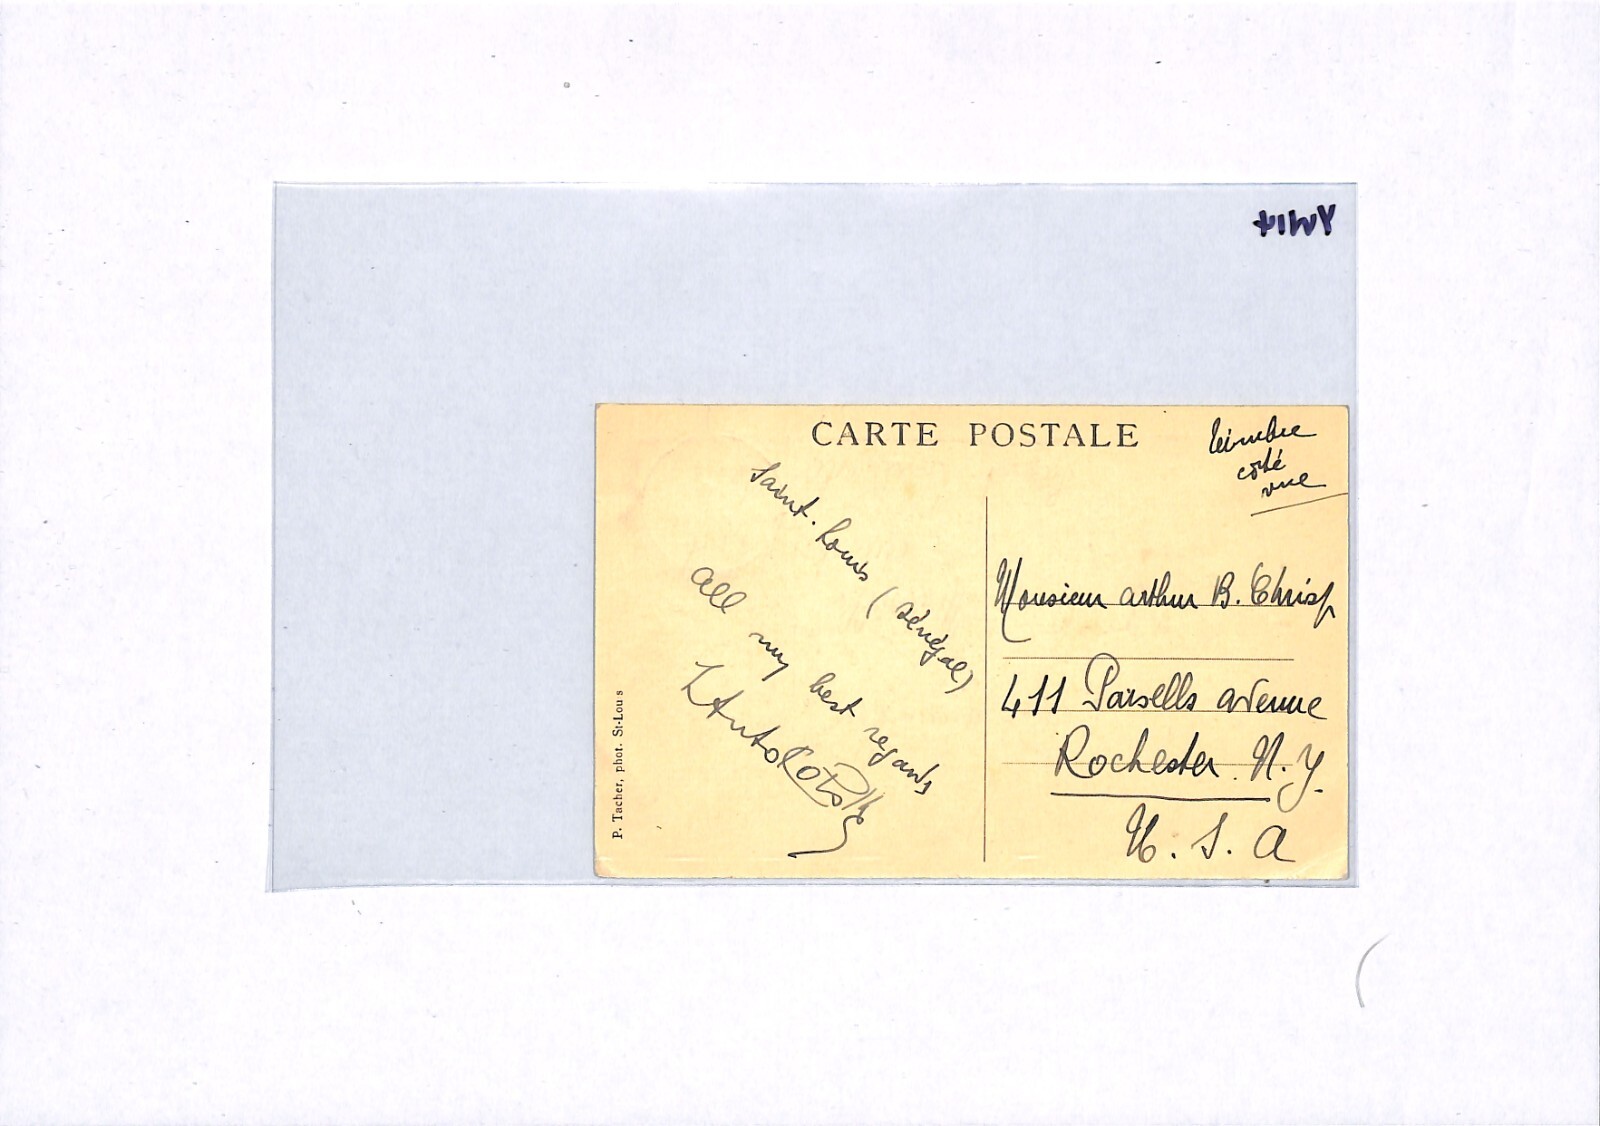 YM14
CARTE POSTALE
timbre
côté
vue
Saint-Louis (Sénégal)
all my best regards
Monsieur Arthur B. Chrisp
411 Parsells avenue
Rochester. N.Y.
U.S.A
P. Tacher, phot. St-Louis